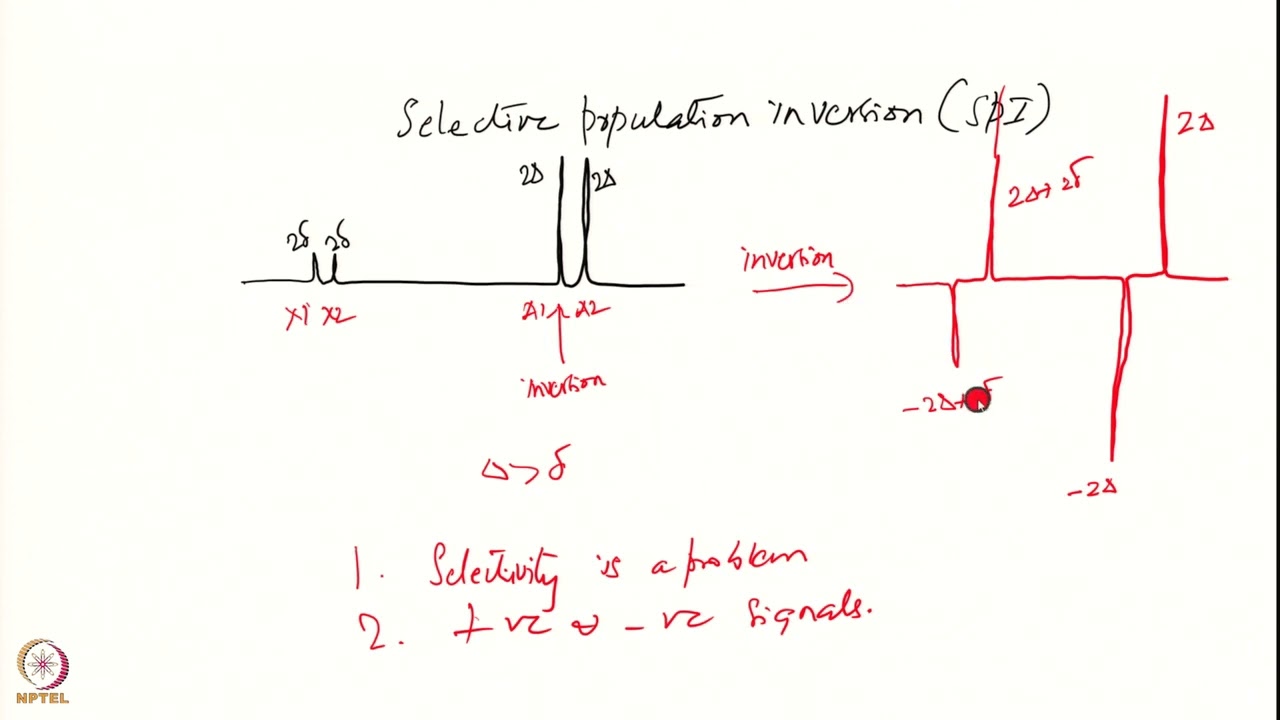 Selective population inversion (SPI)
2Δ
2Δ 2Δ
2Δ+2δ
2δ 2δ
inversion
X1 X2
A1 A2
inversion
-2Δ+
-2Δ
Δ>δ
1. Selectivity is a problem
2. +ve & -ve signals.
NPTEL